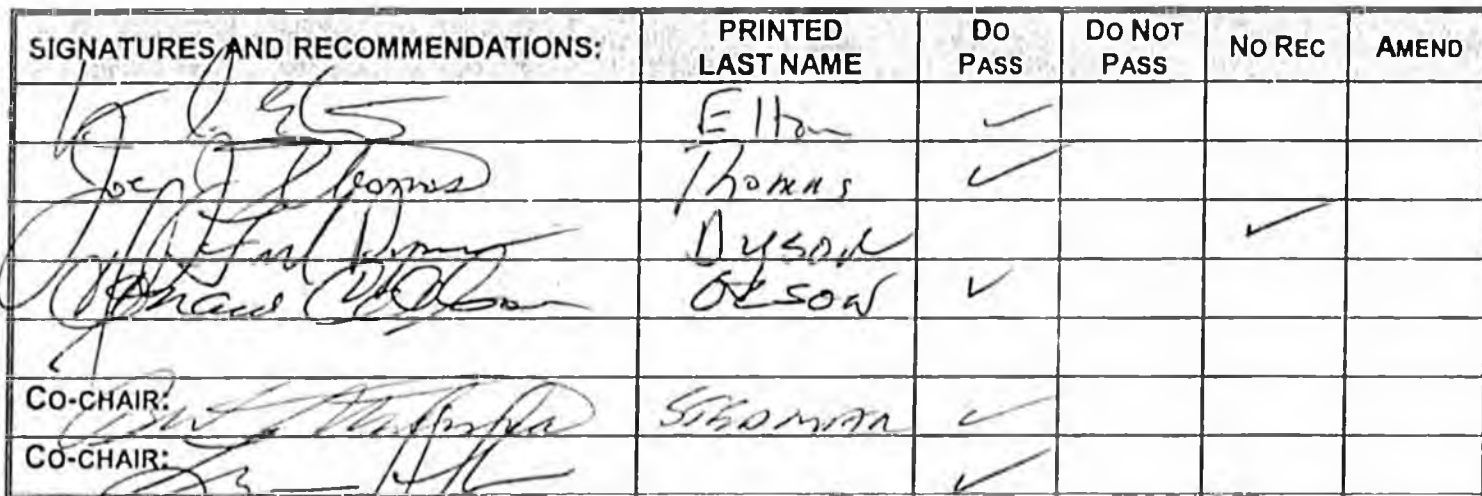 SIGNATURES AND RECOMMENDATIONS: PRINTED LAST NAME DO PASS DO NOT PASS NO REC AMEND
Elton ✓
Joe J Thomas Thomas ✓
Dyson ✓
Donald Olson OLSON ✓
CO-CHAIR: ✓
CO-CHAIR: ✓